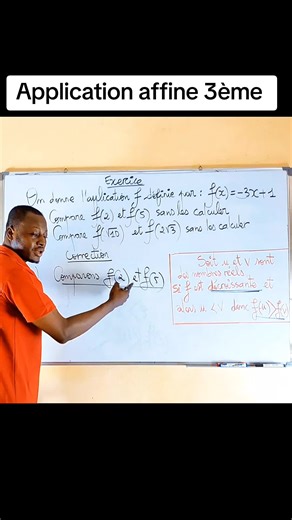 Application affine 3ème
Exercice
On donne l'application f définie par : f(x) = -3x+1
Compare f(2) et f(5) sans les calculer
Compare f(√10) et f(2√3) sans le calculer
Correction
Comparons f(2) et f(5)
Soit u et v sont
des nombres réels.
Si f est décroissante et
alors u < v donc f(u) > f(v)